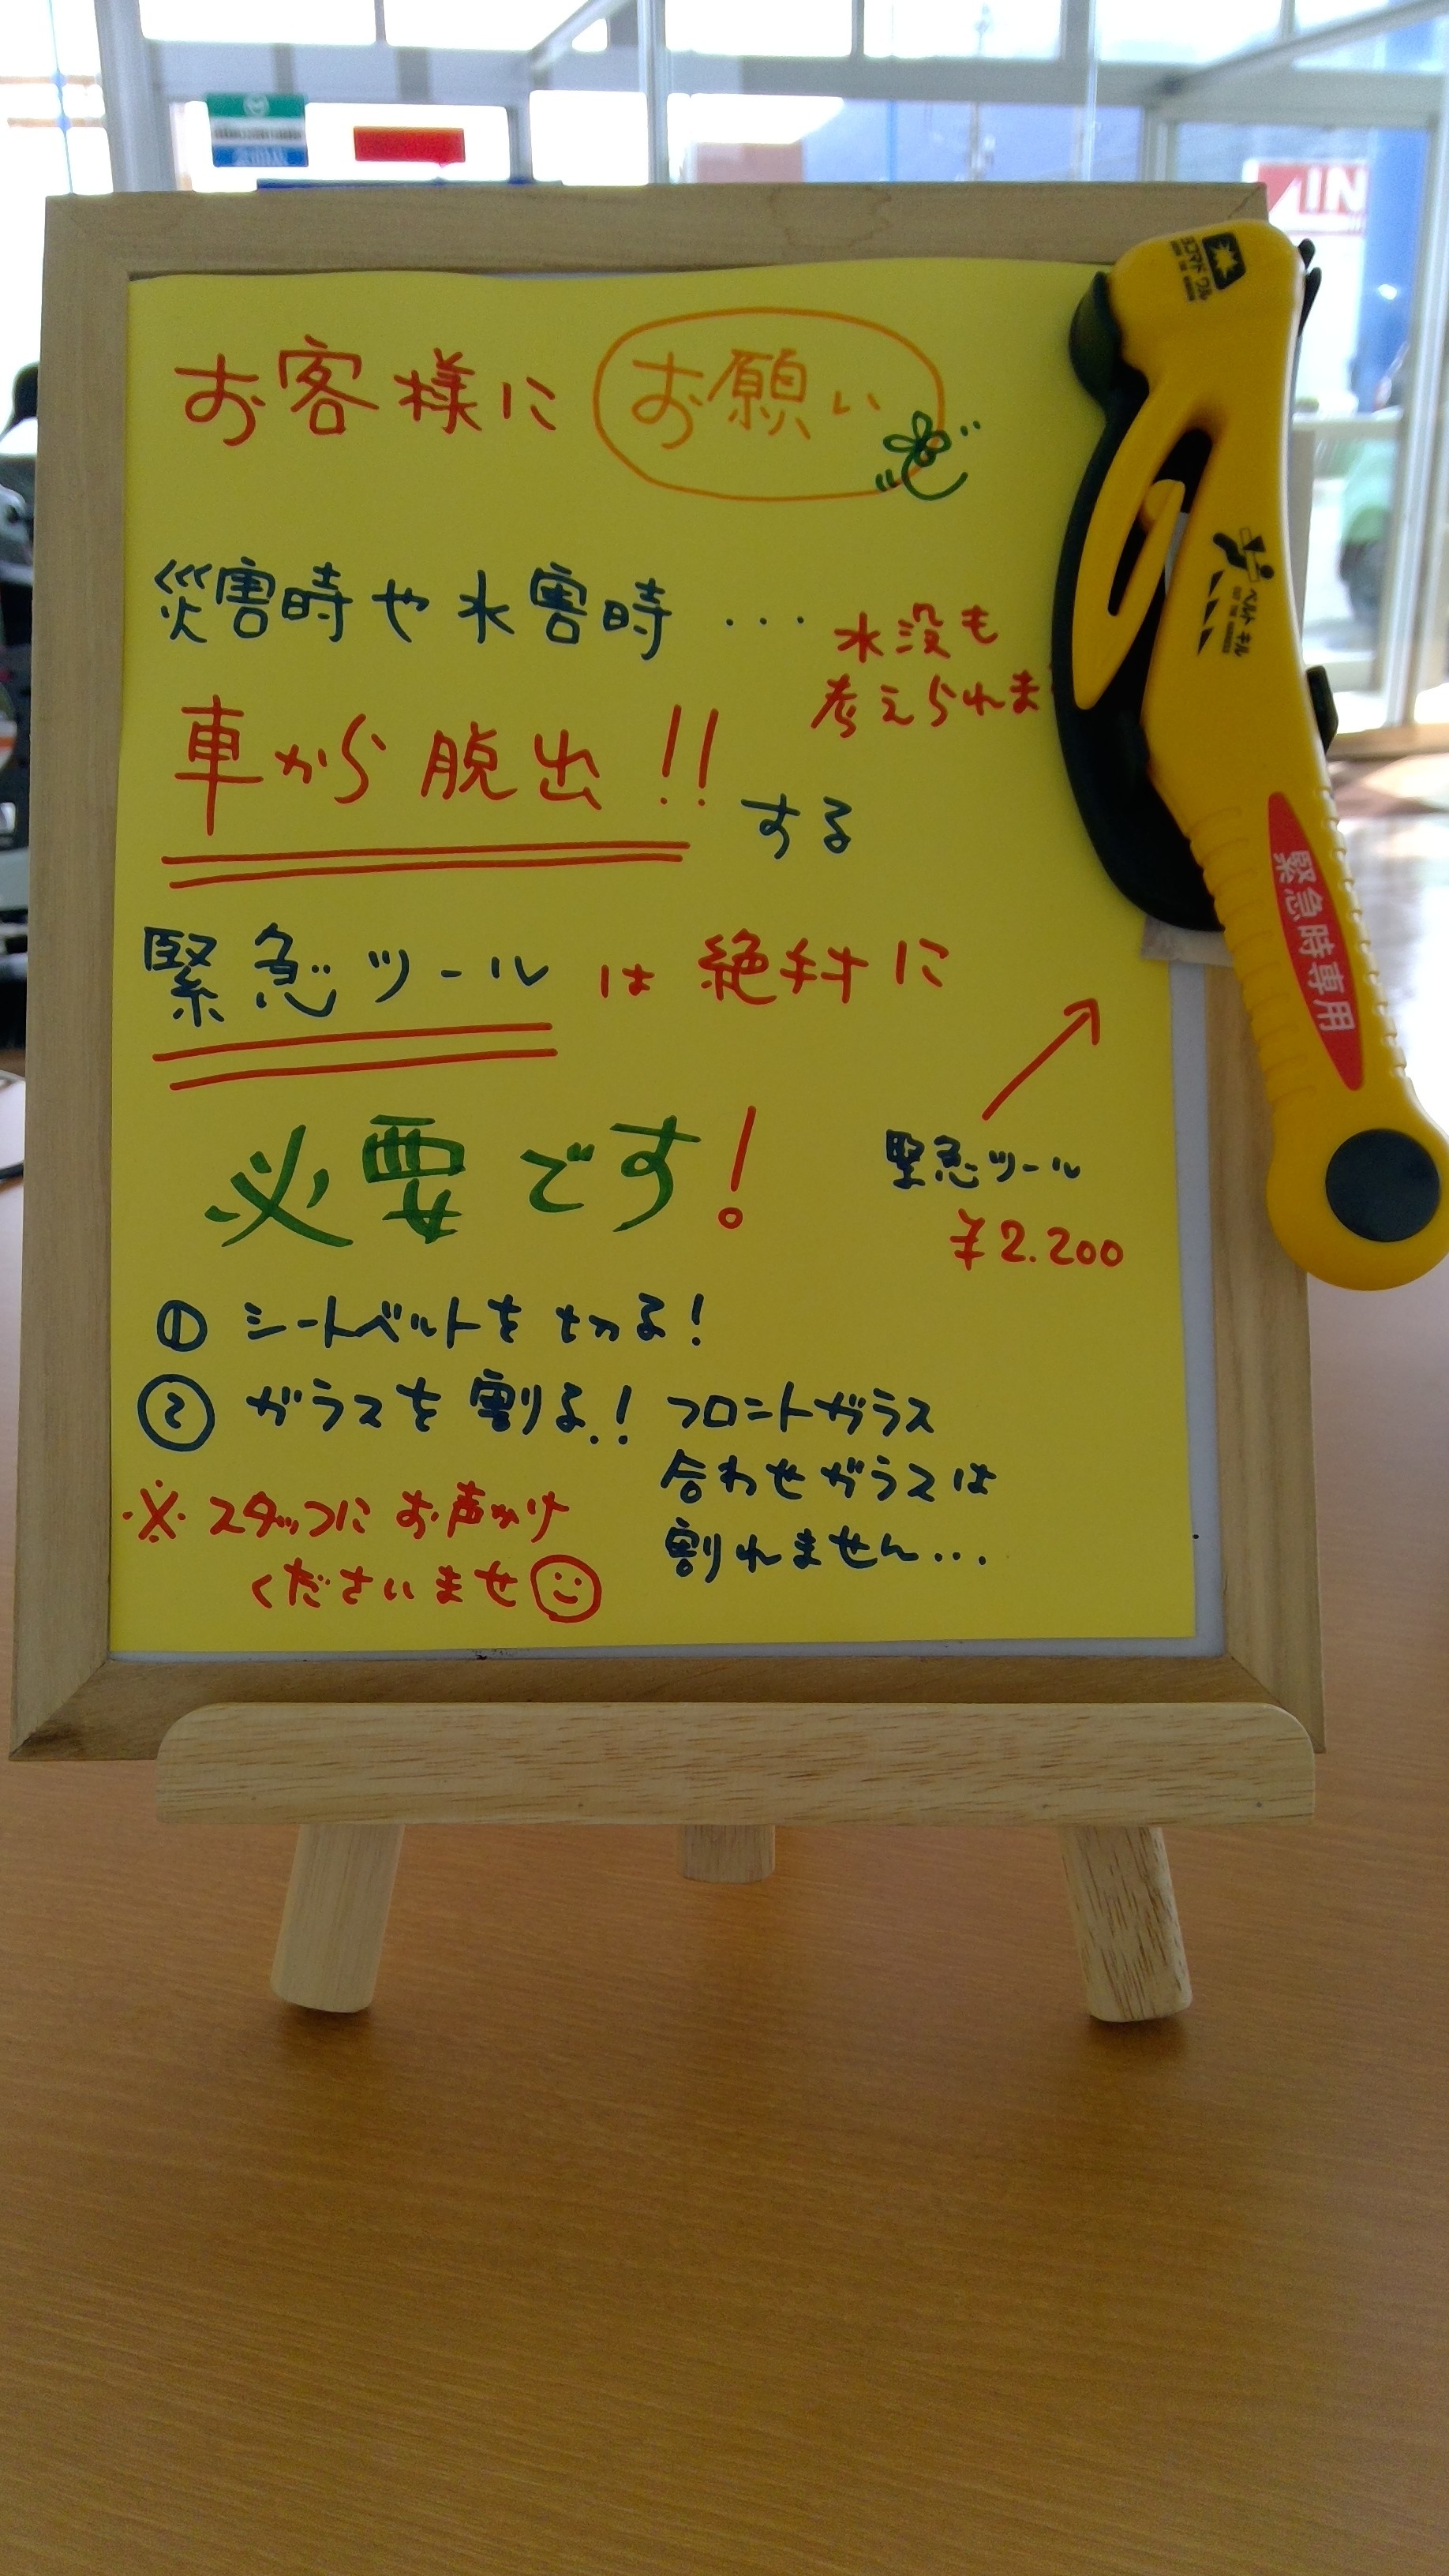 お客様に お願い
災害時や水害時 ...
水没も
考えられま
車から脱出!!
する
緊急ツールは 絶対に
必要です!
緊急ツール
¥2.200
① シートベルトを切る!
② ガラスを割る! フロントガラス
合わせガラスは
割れません...
※ スタッフに お声かけ
くださいませ
ヨコマド ワル
ベルト キル
緊急時専用
IN